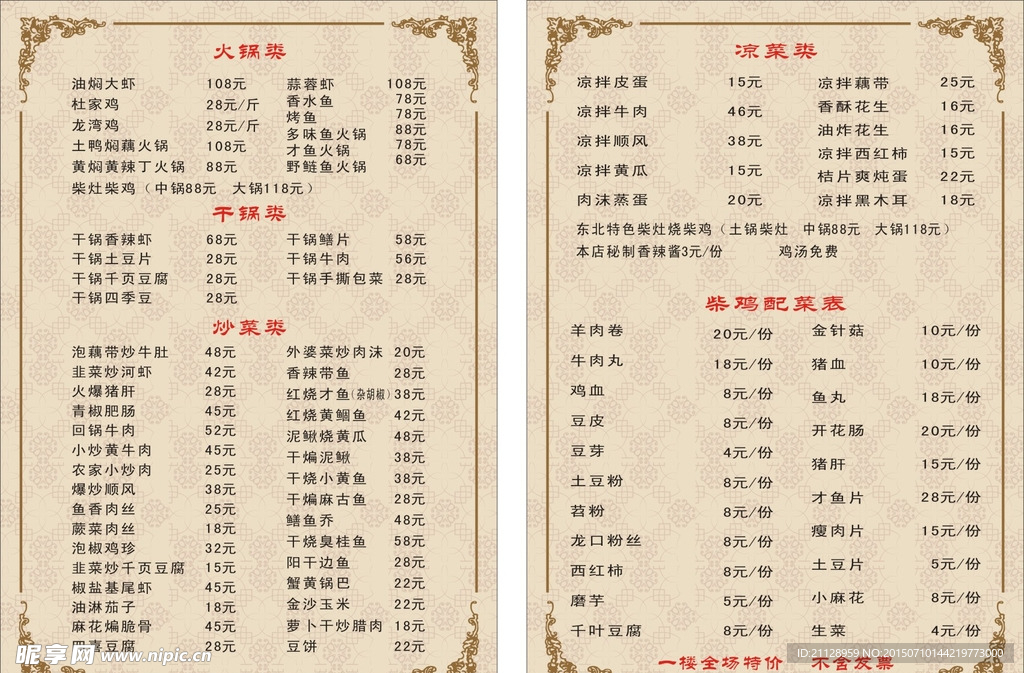 火锅类
油焖大虾 108元
杜家鸡 28元/斤
龙湾鸡 28元/斤
土鸭焖藕火锅 108元
黄焖黄辣丁火锅 88元
蒜蓉虾 108元
香水鱼 78元
烤鱼 78元
多味鱼火锅 88元
才鱼火锅 78元
野鲢鱼火锅 68元
柴灶柴鸡（中锅88元 大锅118元）
干锅类
干锅香辣虾 68元
干锅土豆片 28元
干锅千页豆腐 28元
干锅四季豆 28元
干锅鳝片 58元
干锅牛肉 56元
干锅手撕包菜 28元
炒菜类
泡藕带炒牛肚 48元
韭菜炒河虾 42元
火爆猪肝 28元
青椒肥肠 45元
回锅牛肉 52元
小炒黄牛肉 45元
农家小炒肉 25元
爆炒顺风 38元
鱼香肉丝 25元
蕨菜肉丝 18元
泡椒鸡珍 32元
韭菜炒千页豆腐 15元
椒盐基尾虾 45元
油淋茄子 18元
麻花煸脆骨 45元
四喜豆腐 28元
外婆菜炒肉沫 20元
香辣带鱼 28元
红烧才鱼(杂胡椒) 38元
红烧黄鲴鱼 42元
泥鳅烧黄瓜 48元
干煸泥鳅 38元
干烧小黄鱼 38元
干煸麻古鱼 28元
鳝鱼乔 48元
干烧臭桂鱼 58元
阳干边鱼 28元
蟹黄锅巴 22元
金沙玉米 22元
萝卜干炒腊肉 18元
豆饼 22元
昵享网 www.nipic.cn
凉菜类
凉拌皮蛋 15元
凉拌牛肉 46元
凉拌顺风 38元
凉拌黄瓜 15元
肉沫蒸蛋 20元
凉拌藕带 25元
香酥花生 16元
油炸花生 16元
凉拌西红柿 15元
桔片爽炖蛋 22元
凉拌黑木耳 18元
东北特色柴灶烧柴鸡（土锅柴灶 中锅88元 大锅118元）
本店秘制香辣酱3元/份 鸡汤免费
柴鸡配菜表
羊肉卷 20元/份
牛肉丸 18元/份
鸡血 8元/份
豆皮 8元/份
豆芽 4元/份
土豆粉 8元/份
苕粉 8元/份
龙口粉丝 8元/份
西红柿 8元/份
磨芋 5元/份
千叶豆腐 8元/份
金针菇 10元/份
猪血 10元/份
鱼丸 18元/份
开花肠 20元/份
猪肝 15元/份
才鱼片 28元/份
瘦肉片 15元/份
土豆片 5元/份
小麻花 8元/份
生菜 4元/份
一楼全场特价 不含发票
ID:21128959 NO:20150710144219773000